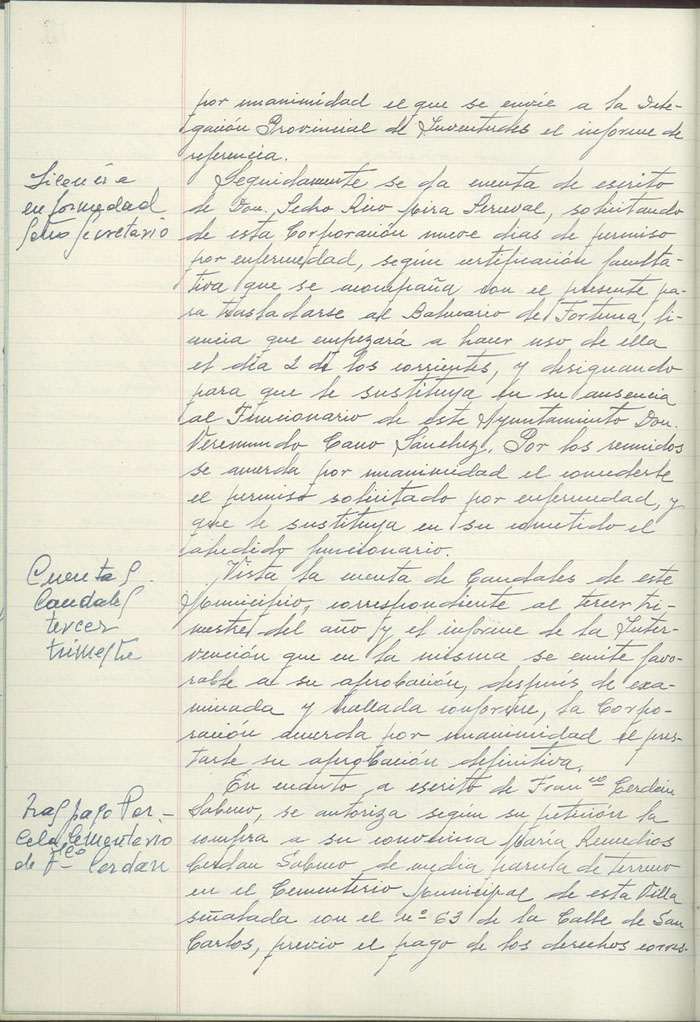 por unanimidad el que se envíe a la Dele-
gación Provincial de Juventudes el informe de
referencia.
Licencia
enfermedad
Seño Secretario
Seguidamente se da cuenta de escrito
de Don Pedro Rico Mira Perceval, solicitando
de esta Corporación nueve dias de permiso
por enfermedad, según certificación faculta-
tiva que se acompaña con el presente pa-
ra trasladarse al Balneario de Fortuna, li-
cencia que empezará a hacer uso de ella
el dia 2 de los corrientes, y designando
para que le sustituya en su ausencia
al Funcionario de este Ayuntamiento Don.
Veremundo Cano Sánchez. Por los reunidos
se acuerda por unanimidad el concederle
el permiso solicitado por enfermedad, y
que le sustituya en su cometido el
aludido funcionario.
Cuentas
Caudales
tercer
trimestre
Vista la cuenta de Caudales de este
Municipio, correspondiente al tercer tri-
mestre del año y el informe de la Inter-
vención que en la misma se emite favo-
rable a su aprobación, después de exa-
minada y hallada conforme, la Corpo-
ración acuerda por unanimidad el pres-
tarle su aprobación definitiva.
Traspaso Par-
cela Cementerio
de Fco Cerdán
En cuanto a escrito de Franco Cerdán
Sabuco, se autoriza según su petición la
compra a su convecina María Remedios
Cerdán Sabuco de media parcela de terreno
en el Cementerio Municipal de esta Villa
señalada con el nº 63 de la Calle de San
Carlos, previo el pago de los derechos corres-